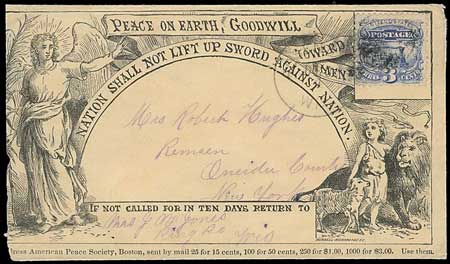 PEACE ON EARTH, GOODWILL
TOWARD
MEN
NATION SHALL NOT LIFT UP SWORD AGAINST NATION.
POSTAGE
3
Mrs Robert Hughes
Remsen
Oneida County
New York
IF NOT CALLED FOR IN TEN DAYS, RETURN TO
Jones
ress American Peace Society, Boston, sent by mail 25 for 15 cents, 100 for 50 cents, 250 for $1.00, 1000 for $3.00. Use them.